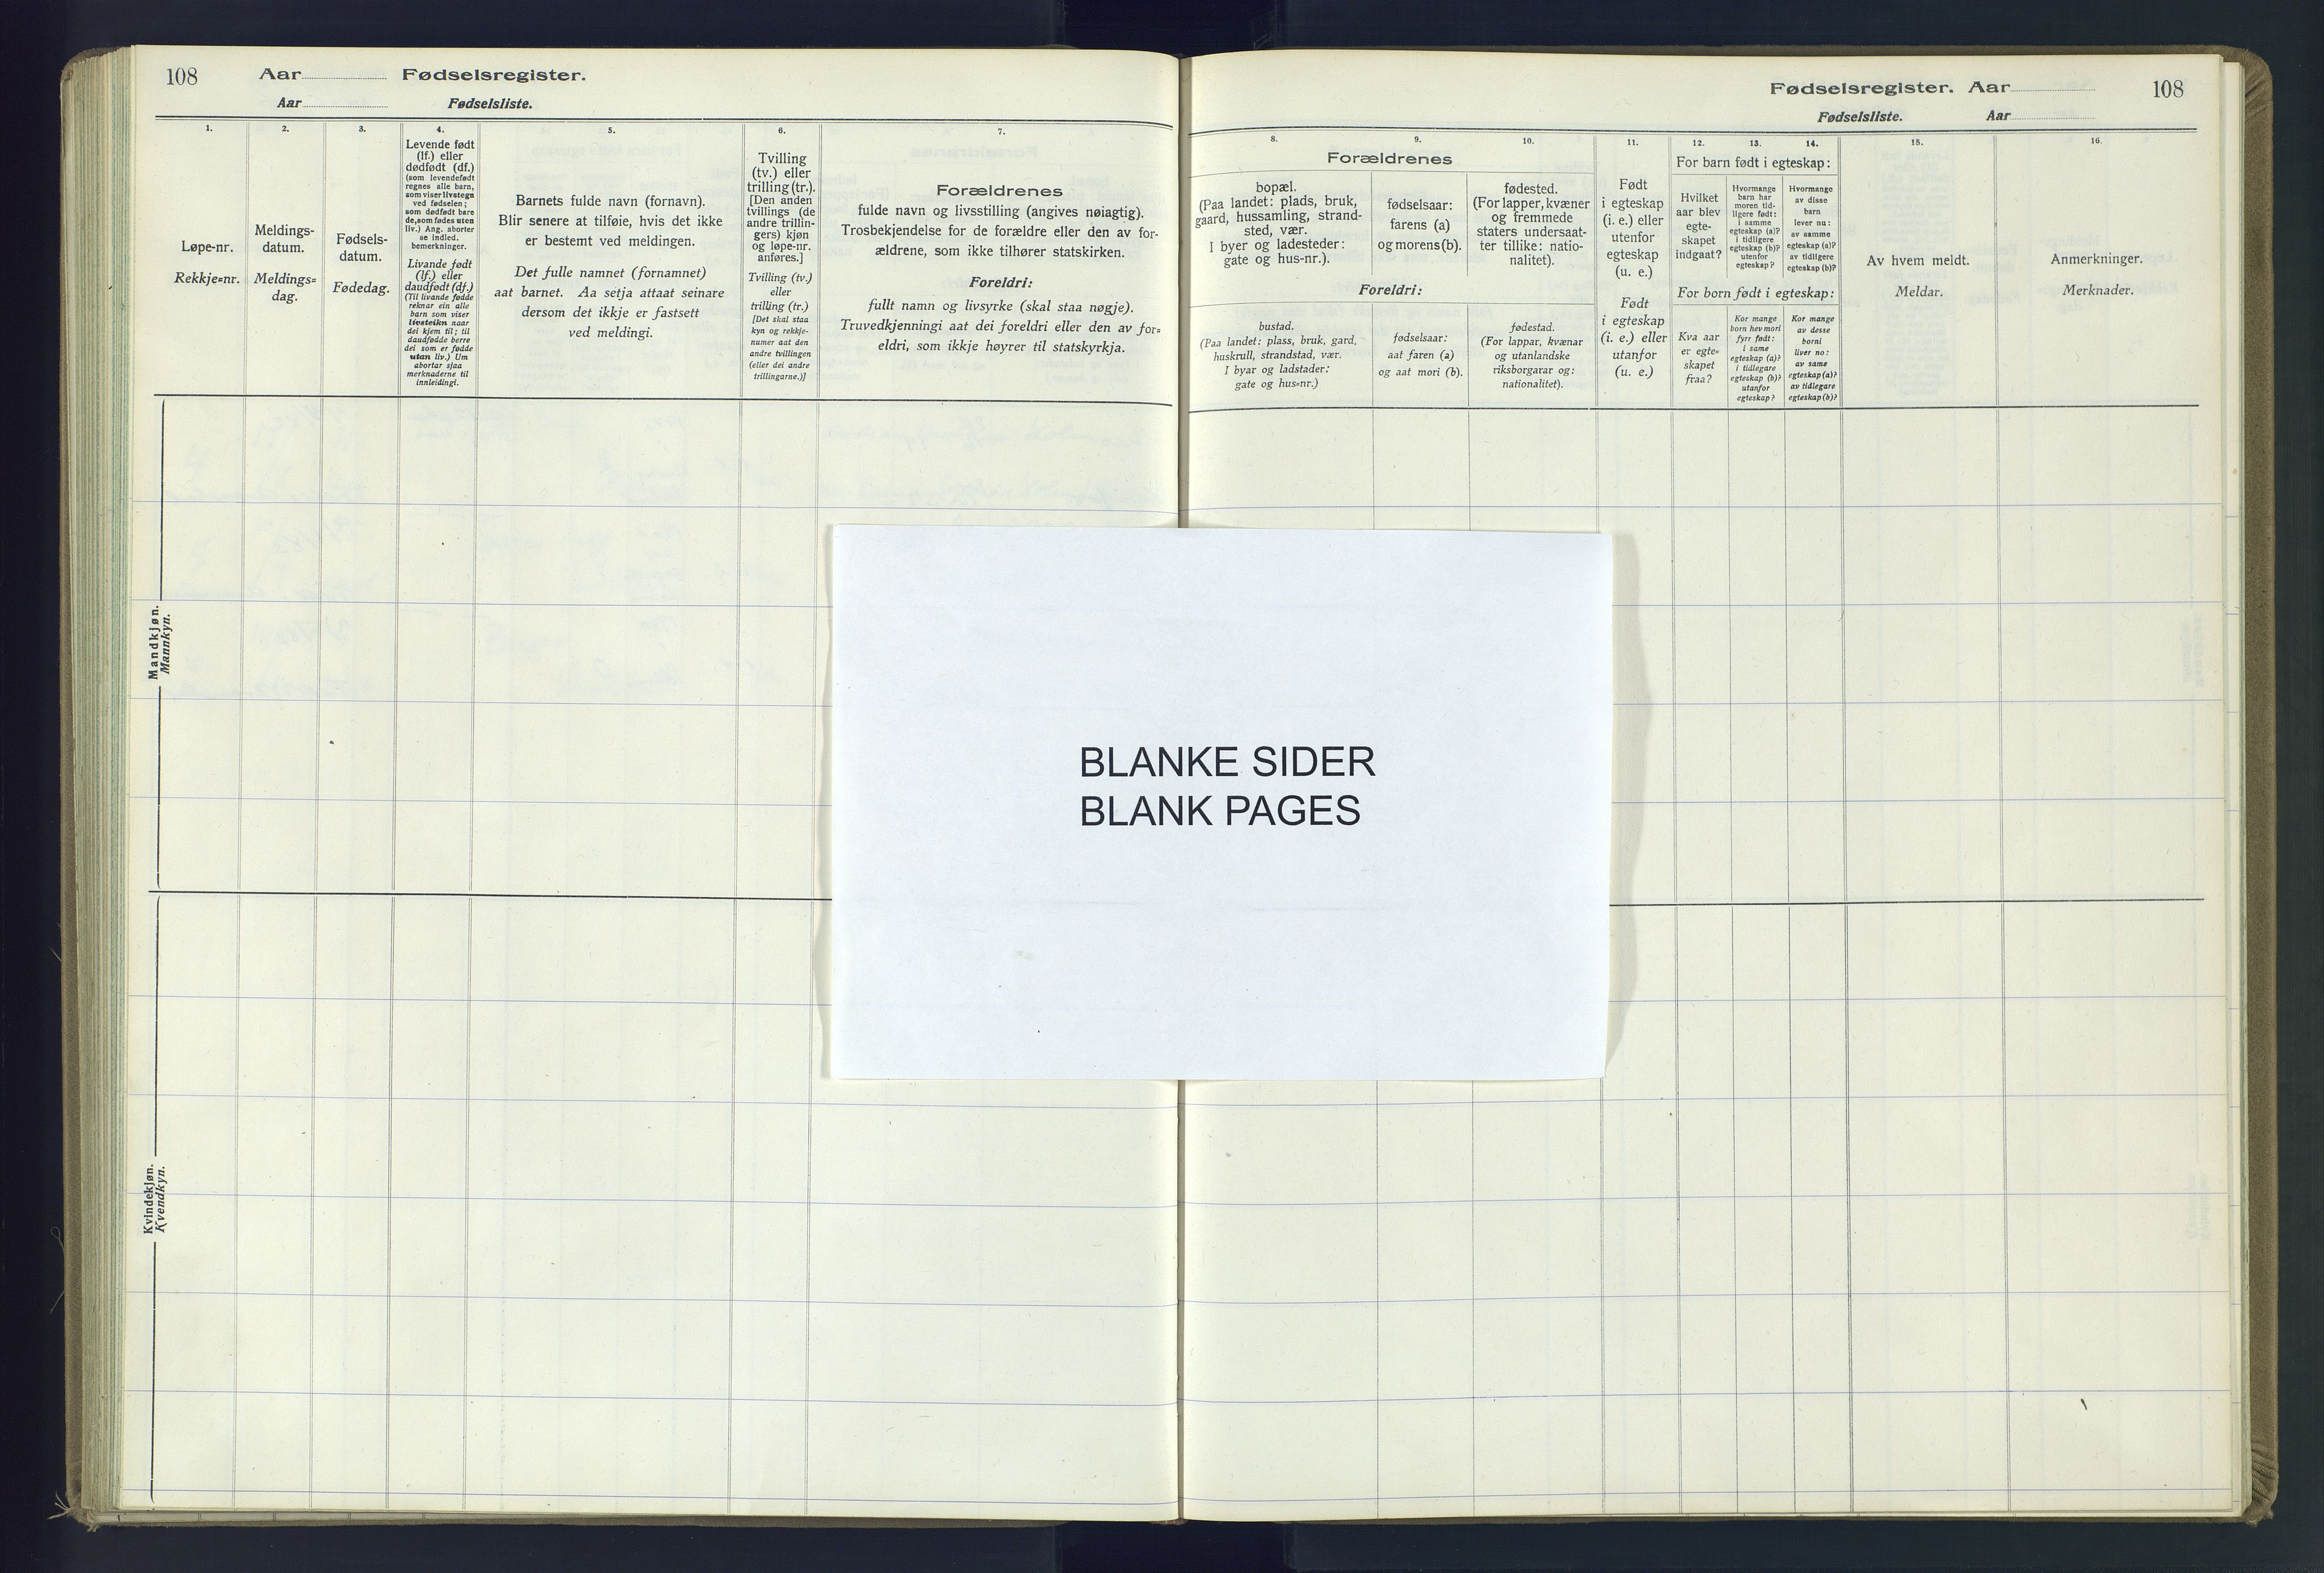 108 Aar Fødselsregister.
Aar Fødselsliste.
1.
Løpe-nr.
Rekkje=nr.
2.
Meldings-
datum.
Meldings=
dag.
3.
Fødsels-
datum.
Fødedag.
4.
Levende født
(lf.) eller
dødfødt (df.)
(som levendefødt
regnes alle barn,
som viser livstegn
ved fødselen;
som dødfødt bare
de, som fødes uten
liv.) Ang. aborter
se indled.
bemerkninger.
Livande født
(lf.) eller
daudfødt (df.)
(Til livande fødde
reknar ein alle
barn som viser
livsteikn naar
dei kjem til; til
daudfødde berre
dei som er fødde
utan liv.) Um
abortar sjaa
merknaderne til
innleidingi.
5.
Barnets fulde navn (fornavn).
Blir senere at tilføie, hvis det ikke
er bestemt ved meldingen.
Det fulle namnet (fornamnet)
aat barnet. Aa setja attaat seinare
dersom det ikkje er fastsett
ved meldingi.
6.
Tvilling
(tv.) eller
trilling (tr.).
[Den anden
tvillings (de
andre trillin-
gers) kjøn
og løpe-nr.
anføres.]
Tvilling (tv.)
eller
trilling (tr.)
[Det skal staa
kyn og rekkje-
numer aat den
andre tvillingen
(eller dei andre
trillingarne.)]
7.
Forældrenes
fulde navn og livsstilling (angives nøiagtig).
Trosbekjendelse for de forældre eller den av for-
ældrene, som ikke tilhører statskirken.
Foreldri:
fullt namn og livsyrke (skal staa nøgje).
Truvedkjenningi aat dei foreldri eller den av for=
eldri, som ikkje høyrer til statskyrkja.
Mandkjøn.
Mannkyn.
Kvindekjøn.
Kvendkyn.
Fødselsregister. Aar 108
Fødselsliste. Aar
8.
9.
10.
Forældrenes
bopæl.
(Paa landet: plads, bruk,
gaard, hussamling, strand-
sted, vær.
I byer og ladesteder:
gate og hus-nr.).
fødselsaar:
farens (a)
og morens (b).
fødested.
(For lapper, kvæner
og fremmede
staters undersaat-
ter tillike: natio-
nalitet).
Foreldri:
bustad.
(Paa landet: plass, bruk, gard,
huskrull, strandstad, vær.
I byar og ladstader:
gate og hus=nr.)
fødselsaar:
aat faren (a)
og aat mori (b).
fødestad.
(For lappar, kvænar
og utanlandske
riksborgarar og:
nationalitet).
11.
Født
i egteskap
(i. e.) eller
utenfor
egteskap
(u. e.)
Født
i egteskap
(i. e.) eller
utanfor
(u. e.)
12.
13.
14.
For barn født i egteskap:
Hvilket
aar blev
egte-
skapet
indgaat?
Hvormange
barn har
moren tid-
ligere født:
i samme
egteskap (a)?
i tidligere
egteskap (b)?
utenfor
egteskap?
Hvormange
av disse
barn
lever nu:
av samme
egteskap (a)?
av tidligere
egteskap (b)?
For born født i egteskap:
Kva aar
er egte=
skapet
fraa?
Kor mange
born hev mori
fyrr født:
i same
egteskap (a)?
i tidlegare
egteskap (b)?
utanfor
egteskap?
Kor mange
av desse
borni
liver no:
av same
egteskap (a)?
av tidlegare
egteskap (b)?
15.
Av hvem meldt.
Meldar.
16.
Anmerkninger.
Merknader.
BLANKE SIDER
BLANK PAGES